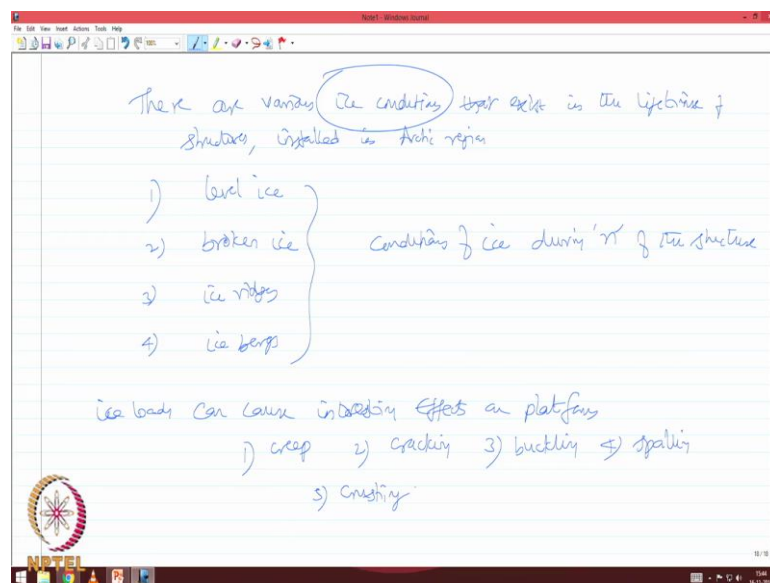 Note1 - Windows Journal
File Edit View Insert Actions Tools Help
There are various ice conditions that exist in the lifetime of
structures, installed in Arctic region
1) level ice
2) broken ice
3) ice ridges
4) ice bergs
conditions of ice during 'n' of the structure
ice loads can cause interesting effects on platforms
1) creep 2) cracking 3) buckling 4) spalling
5) crushing
10/10
NPTEL
15:44